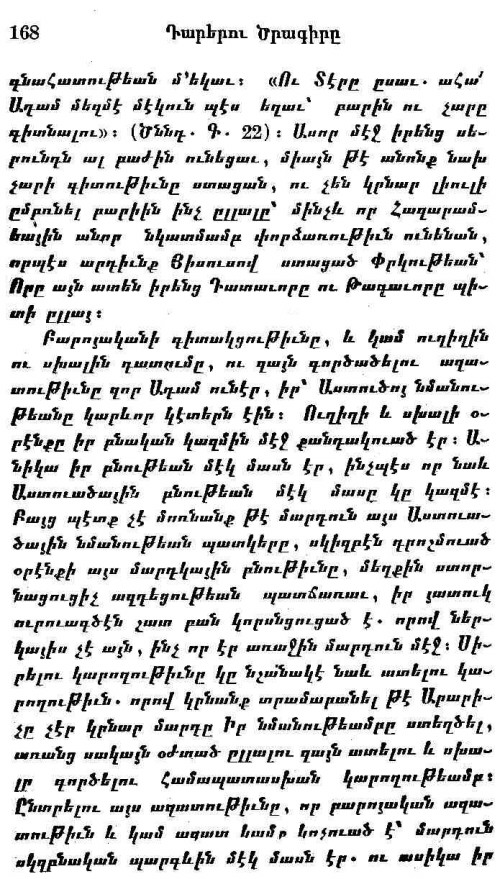 168 Դարերու Ծրագիրը
գնահատութեան մ՚եկաւ։ «Ու Տէրը ըսաւ. ահա՛
Ադամ մեզմէ մէկուն պէս եղաւ՝ բարին ու չարը
գիտնալու»։ (Ծննդ. Գ. 22)։ Ասոր մէջ իրենց սե-
րունդն ալ բաժին ունեցաւ, միայն թէ անոնք նախ
չարի գիտութիւնը ստացան, ու չեն կրնար լիուլի
ըմբռնել բարիին ինչ ըլլալը՝ մինչև որ Հազարամ-
եային անոր նկատմամբ փորձառութիւն ունենան,
որպէս արդիւնք Յիսուսով ստացած Փրկութեան՝
Որը այն ատեն իրենց Դատաւորը ու Թագաւորը պի-
տի ըլլայ։
Բարոյականի գիտակցութիւնը, և կամ ուղիղին
ու սխալին դատումը, ու զայն գործածելու ազա-
տութիւնը զոր Ադամ ունէր, իր՝ Աստուծոյ նմանու-
թեանը կարևոր կէտերն էին։ Ուղիղի և սխալի օ-
րէնքը իր բնական կազմին մէջ քանդակուած էր։ Ա-
նիկա իր բնութեան մէկ մասն էր, ինչպէս որ նաև
Աստուածային բնութեան մէկ մասը կը կազմէ։
Բայց պէտք չէ մոռնանք թէ մարդուն այս Աստուա-
ծային նմանութեան պատկերը, սկիզբէն դրոշմուած
օրէնքի այս մարդկային բնութիւնը, մեղքին ստոր-
նացուցիչ ազդեցութեան պատճառաւ, իր յատուկ
ուրուագծէն շատ բան կորսնցուցած է. որով ներ-
կայիս չէ այն, ինչ որ էր առաջին մարդուն մէջ։ Սի-
րելու կարողութիւնը կը նշանակէ նաև ատելու կա-
րողութիւն. որով կրնանք տրամաբանել թէ Արարի-
չը չէր կրնար մարդը Իր նմանութեամբը ստեղծել,
առանց սակայն օժտած ըլլալու զայն ատելու և սխա-
լը գործելու համապատասխան կարողութեամբ։
Ընտրելու այս ազատութիւնը, որ բարոյական ազա-
տութիւն և կամ ազատ կամք կոչուած է՝ մարդուն
սկզբնական պարգևին մէկ մասն էր. ու ասիկա իր